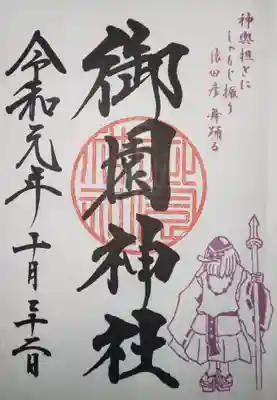 神輿担ぎに
しゃもじ振り
猿田彦 舞踊る
御園神社
令和元年 十月二十二日